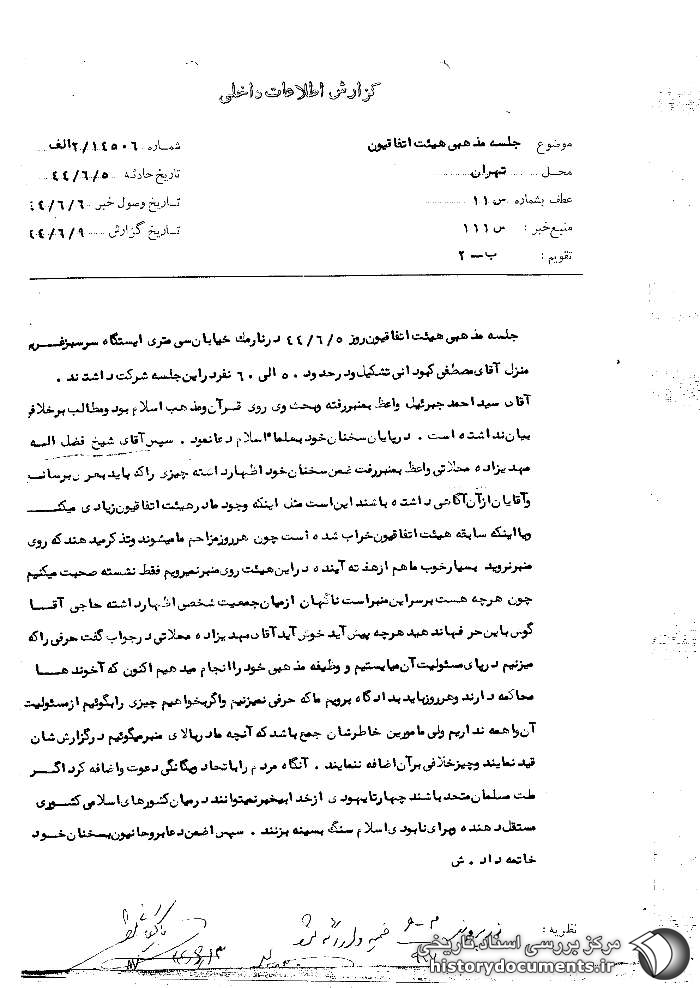 گزارش اطلاعات داخلی
موضوع جلسه مذهبی هیئت اتفاقیون
شماره ۲/۱۴۵۰۶الف
محل تهران
تاریخ حادثه ۴۴/۶/۵
عطف بشماره س ۱۱
تاریخ وصول خبر ۴۴/۶/۶
منبع خبر: س ۱۱۱
تاریخ گزارش ۴۴/۶/۹
تقویم: ب-۲
جلسه مذهبی هیئت اتفاقیون روز ۴۴/۶/۵ در نارمك خیابان سی متری ایستگاه سرسبز
منزل آقای مصطفی کبودانی تشکیل و در حدود ۵۰ الی ۶۰ نفر در این جلسه شرکت داشتند .
آقای سید احمد جبرئیل واعظ بمنبر رفته و بحث وی روی قرآن و مذهب اسلام بود و مطالب برخلافی
بیان نداشته است . در پایان سخنان خود بعلماء اسلام دعا نمود . سپس آقای شیخ فضل اله
مهدیزاده محلاتی واعظ بمنبر رفت ضمن سخنان خود اظهار داشته چیزی را که باید بعرض برسانم
و آقایان از آن آگاهی داشته باشند این است مثل اینکه وجود ما در هیئت اتفاقیون زیادی میکند
و یا اینکه سابقه هیئت اتفاقیون خراب شده است چون هر روز مزاحم ما میشوند و تذکر میدهند که روی
منبر نروید بسیار خوب ما هم از هفته آینده در این هیئت روی منبر نمیرویم فقط نشسته صحبت میکنیم
چون هرچه هست بر سر این منبر است ناگهان از میان جمعیت شخصی اظهار داشته حاجی آقا
گوش باین حرفها ندهید هرچه پیش آید خوش آید آقای مهدیزاده محلاتی در جواب گفت حرفی را که
میزنیم در پای مسئولیت آن میایستیم و وظیفه مذهبی خود را انجام میدهیم اکنون که آخوندها
محاکمه دارند و هر روز باید بدادگاه برویم ما که حرفی نمیزنیم و اگر بخواهیم چیزی را بگوئیم از مسئولیت
آن واهمه نداریم ولی مامورین خاطرشان جمع باشد که آنچه ما در بالای منبر میگوئیم در گزارش شان
قید نمایند و چیز خلافی بر آن اضافه ننمایند . آنگاه مردم را باتحاد و یگانگی دعوت و اضافه کرد اگر
ملت مسلمان متحد باشند چهار تا یهودی از خدا بیخبر نمیتوانند در میان کشورهای اسلامی کشوری
مستقل دهنده و برای نابودی اسلام سنگ بسینه بزنند . سپس ضمن دعا بروحانیون بسخنان خود
خاتمه داد . ش
نظریه:
مرکز بررسی اسناد تاریخی
historydocuments.ir